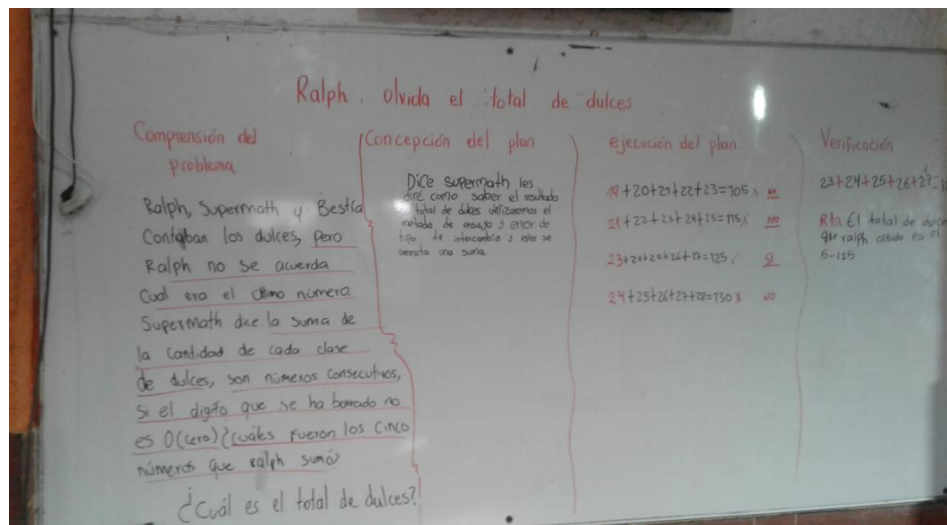 Ralph, olvida el total de dulces
Comprensión del
problema
Ralph, Supermath y Bestia
Contaban los dulces, pero
Ralph no se acuerda
Cual era el último número
Supermath dice: la suma de
la Cantidad de cada clase
de dulces, son números consecutivos,
si el dígito que se ha borrado no
es 0(cero) ¿cuáles fueron los cinco
números que ralph sumó?
¿Cuál es el total de dulces?
Concepción del plan
Dice supermath les
diré como saber el resultado
total de dulces utilizaremos el
método de ensayo y error de
tipo de intercambio y esto se
una suma.
ejecución del plan
19+20+21+22+23=105 x no
21+22+23+24+25=115 x NO
23+24+25+26+27=125 ✓ SI
24+25+26+27+28=130 x NO
Verificación
23+24+25+26+27=
Rta El total de
que ralph olvido es el
5-125